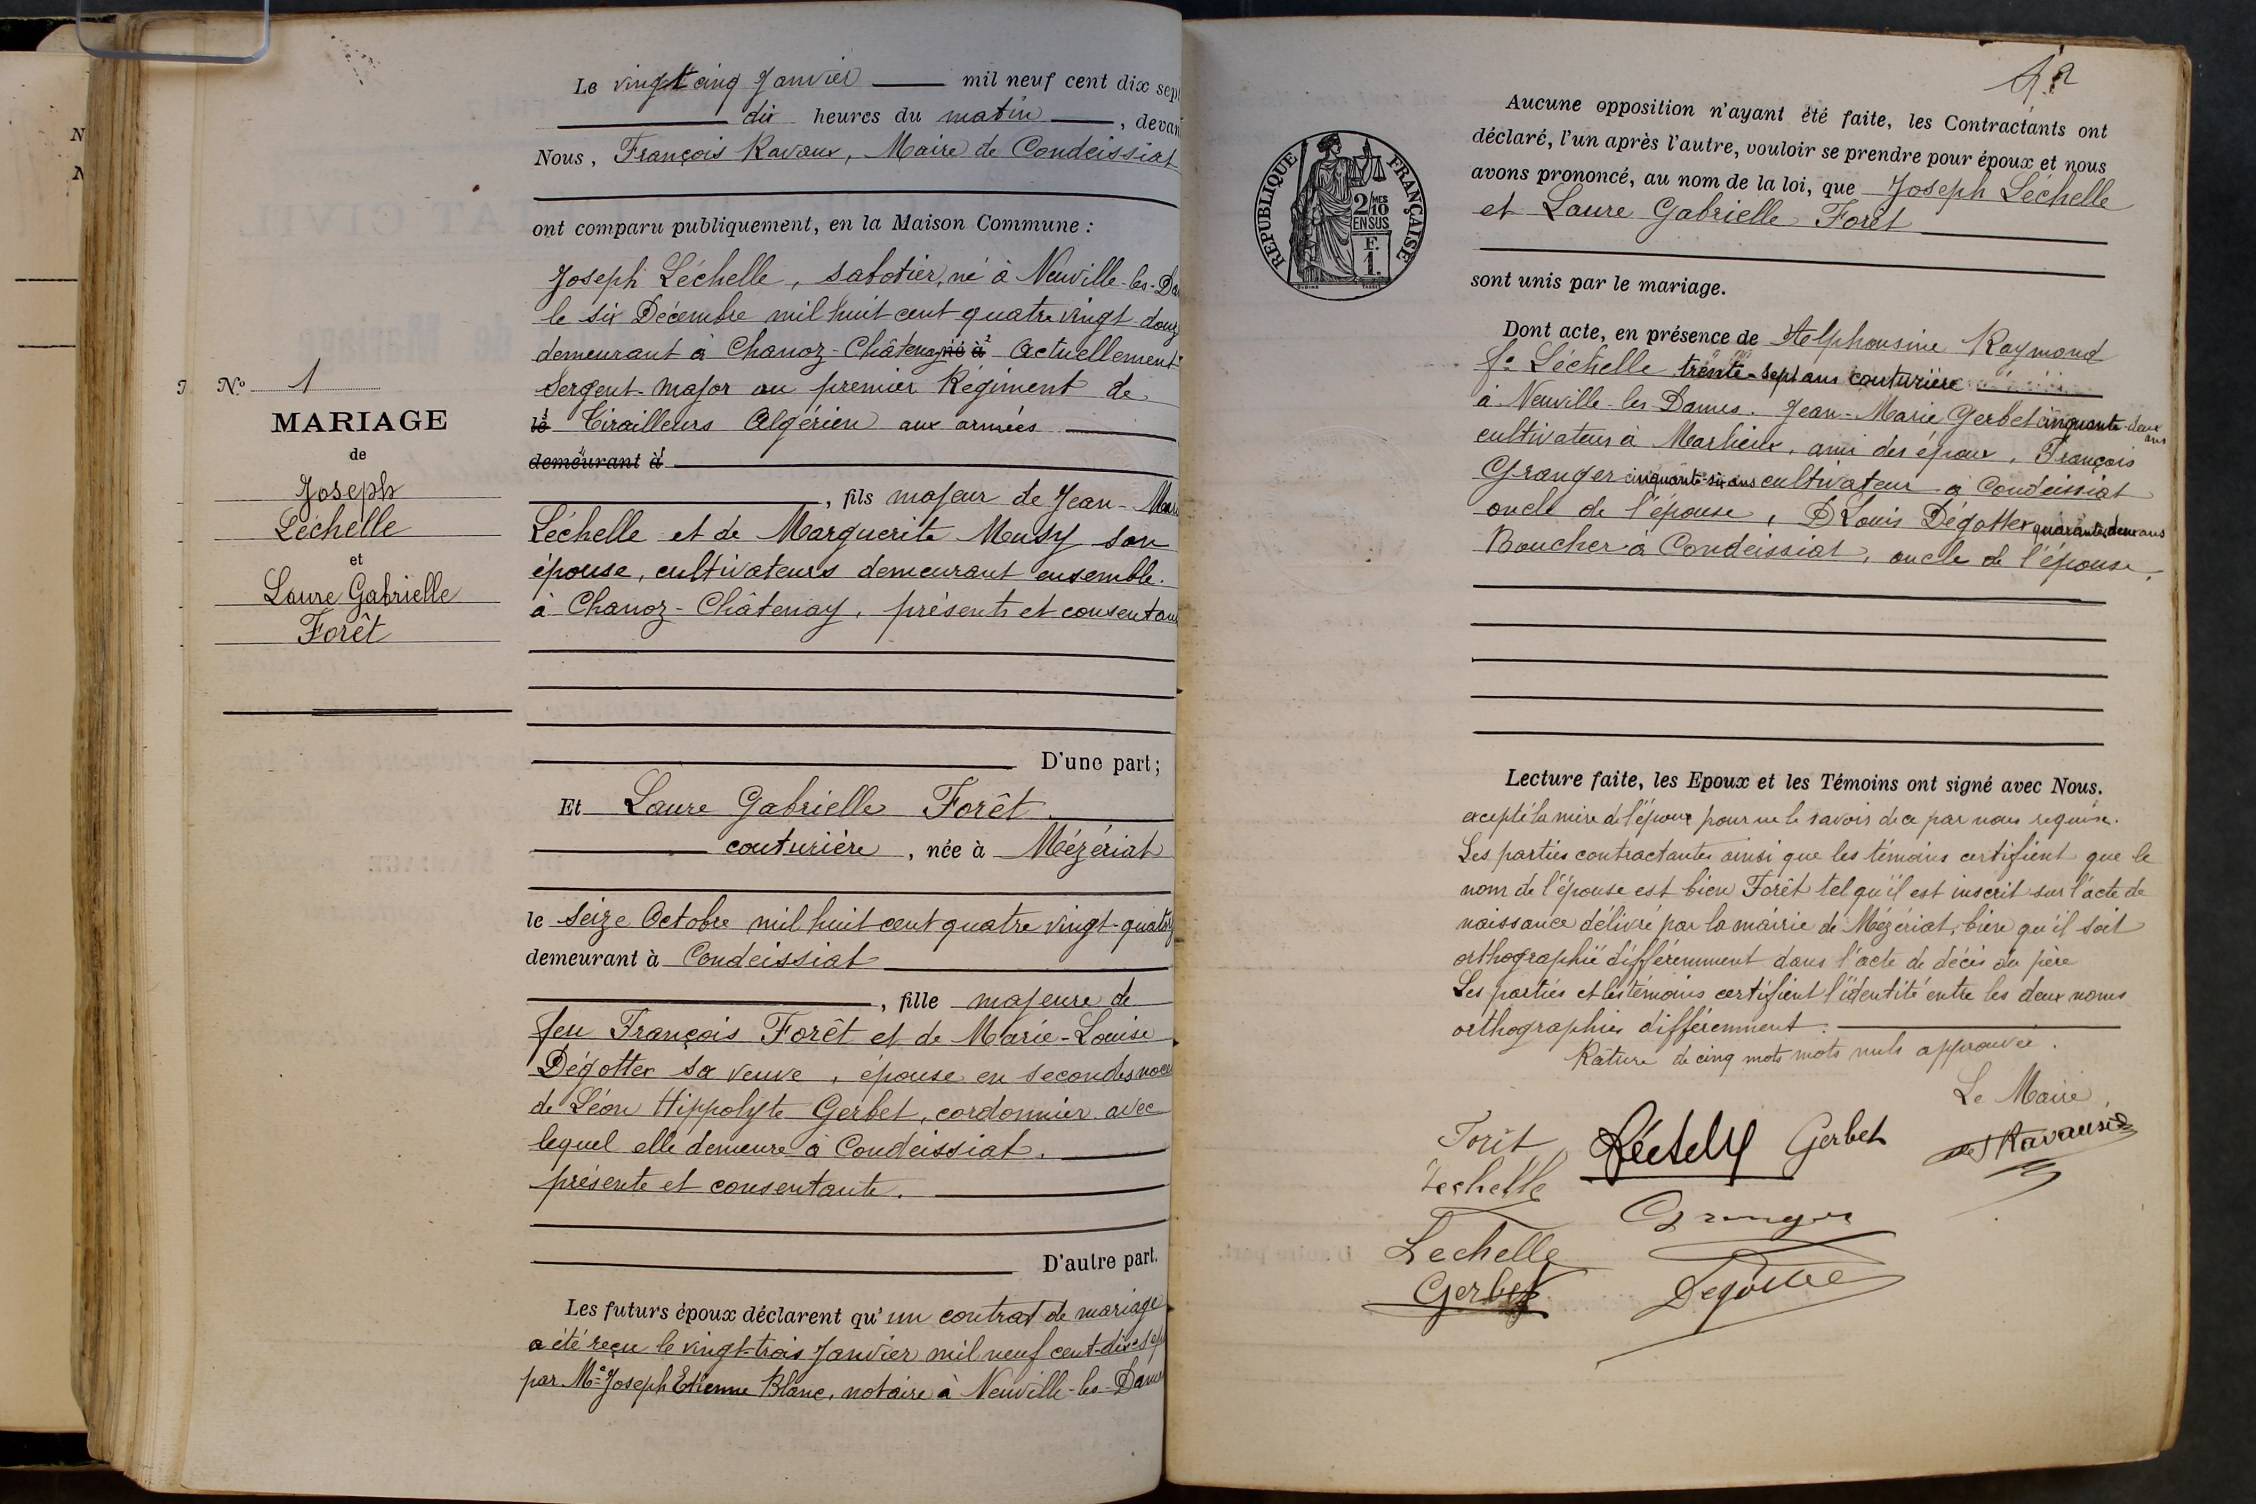 Le vingt cinq Janvier mil neuf cent dix sept
dix heures du matin, devan
Nous, François Ravaux, Maire de Condeissiat
ont comparu publiquement, en la Maison Commune :
Joseph Léchelle, sabotier, né à Neuville-les-Da
le six Décembre mil huit cent quatre vingt douz
demeurant à Chanoz-Châtenay né à actuellement
Sergent-major au premier Régiment de
le Tirailleurs Algérien aux armées
demeurant à
, fils majeur de Jean-Marie
Léchelle et de Marguerite Musy son
épouse, cultivateurs demeurant ensemble
à Chanoz-Châtenay, présents et consentan
D'une part;
Et Laure Gabrielle Forêt
couturière, née à Mézériat
le seize Octobre mil huit cent quatre vingt-quatorz
demeurant à Condeissiat
, fille majeure de
feu François Forêt et de Marie-Louise
Dégotter sa veuve, épouse en secondes noces
de Léon Hippolyte Gerbet, cordonnier avec
lequel elle demeure à Condeissiat.
présente et consentante.
D'autre part.
Les futurs époux déclarent qu'un contrat de mariage
a été reçu le vingt-trois Janvier mil neuf cent-dix-sept
par Me Joseph Etienne Blanc, notaire à Neuville-les-Dames
No 1
MARIAGE
de
Joseph
Léchelle
et
Laure Gabrielle
Forêt
REPUBLIQUE FRANÇAISE
2/10 MES
EN SUS
F.
1.
Aucune opposition n'ayant été faite, les Contractants ont
déclaré, l'un après l'autre, vouloir se prendre pour époux et nous
avons prononcé, au nom de la loi, que Joseph Léchelle
et Laure Gabrielle Forêt
sont unis par le mariage.
Dont acte, en présence de Alphonsine Raymond
fe Léchelle trente-sept ans couturière
à Neuville-les-Dames. Jean-Marie Gerbet cinquante-deux ans
cultivateur à Marlieux, ami des époux, François
Granger cinquante-six ans cultivateur à Condeissiat
oncle de l'épouse, Louis Dégotter quarante deux ans
Boucher à Condeissiat, oncle de l'épouse.
Lecture faite, les Epoux et les Témoins ont signé avec Nous.
excepté la mère de l'époux pour ne le savoir de ce par nous requise.
Les parties contractantes ainsi que les témoins certifient que le
nom de l'épouse est bien Forêt tel qu'il est inscrit sur l'acte de
naissance délivré par la mairie de Mézériat, bien qu'il soit
orthographié différemment dans l'acte de décès du père
Les parties et les témoins certifient l'identité entre les deux noms
orthographiés différemment.
Rature de cinq mots mots nuls approuvée.
Le Maire
Forêt Gerbet Ravaux
Lechelle
Granger
Lechelle
Gerbet